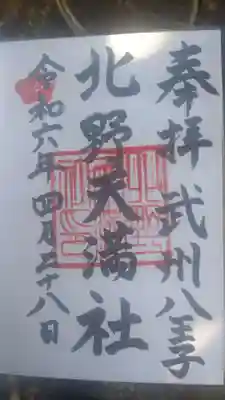 奉拝 武州八王子
北野天満社
令和六年 四月二十八日